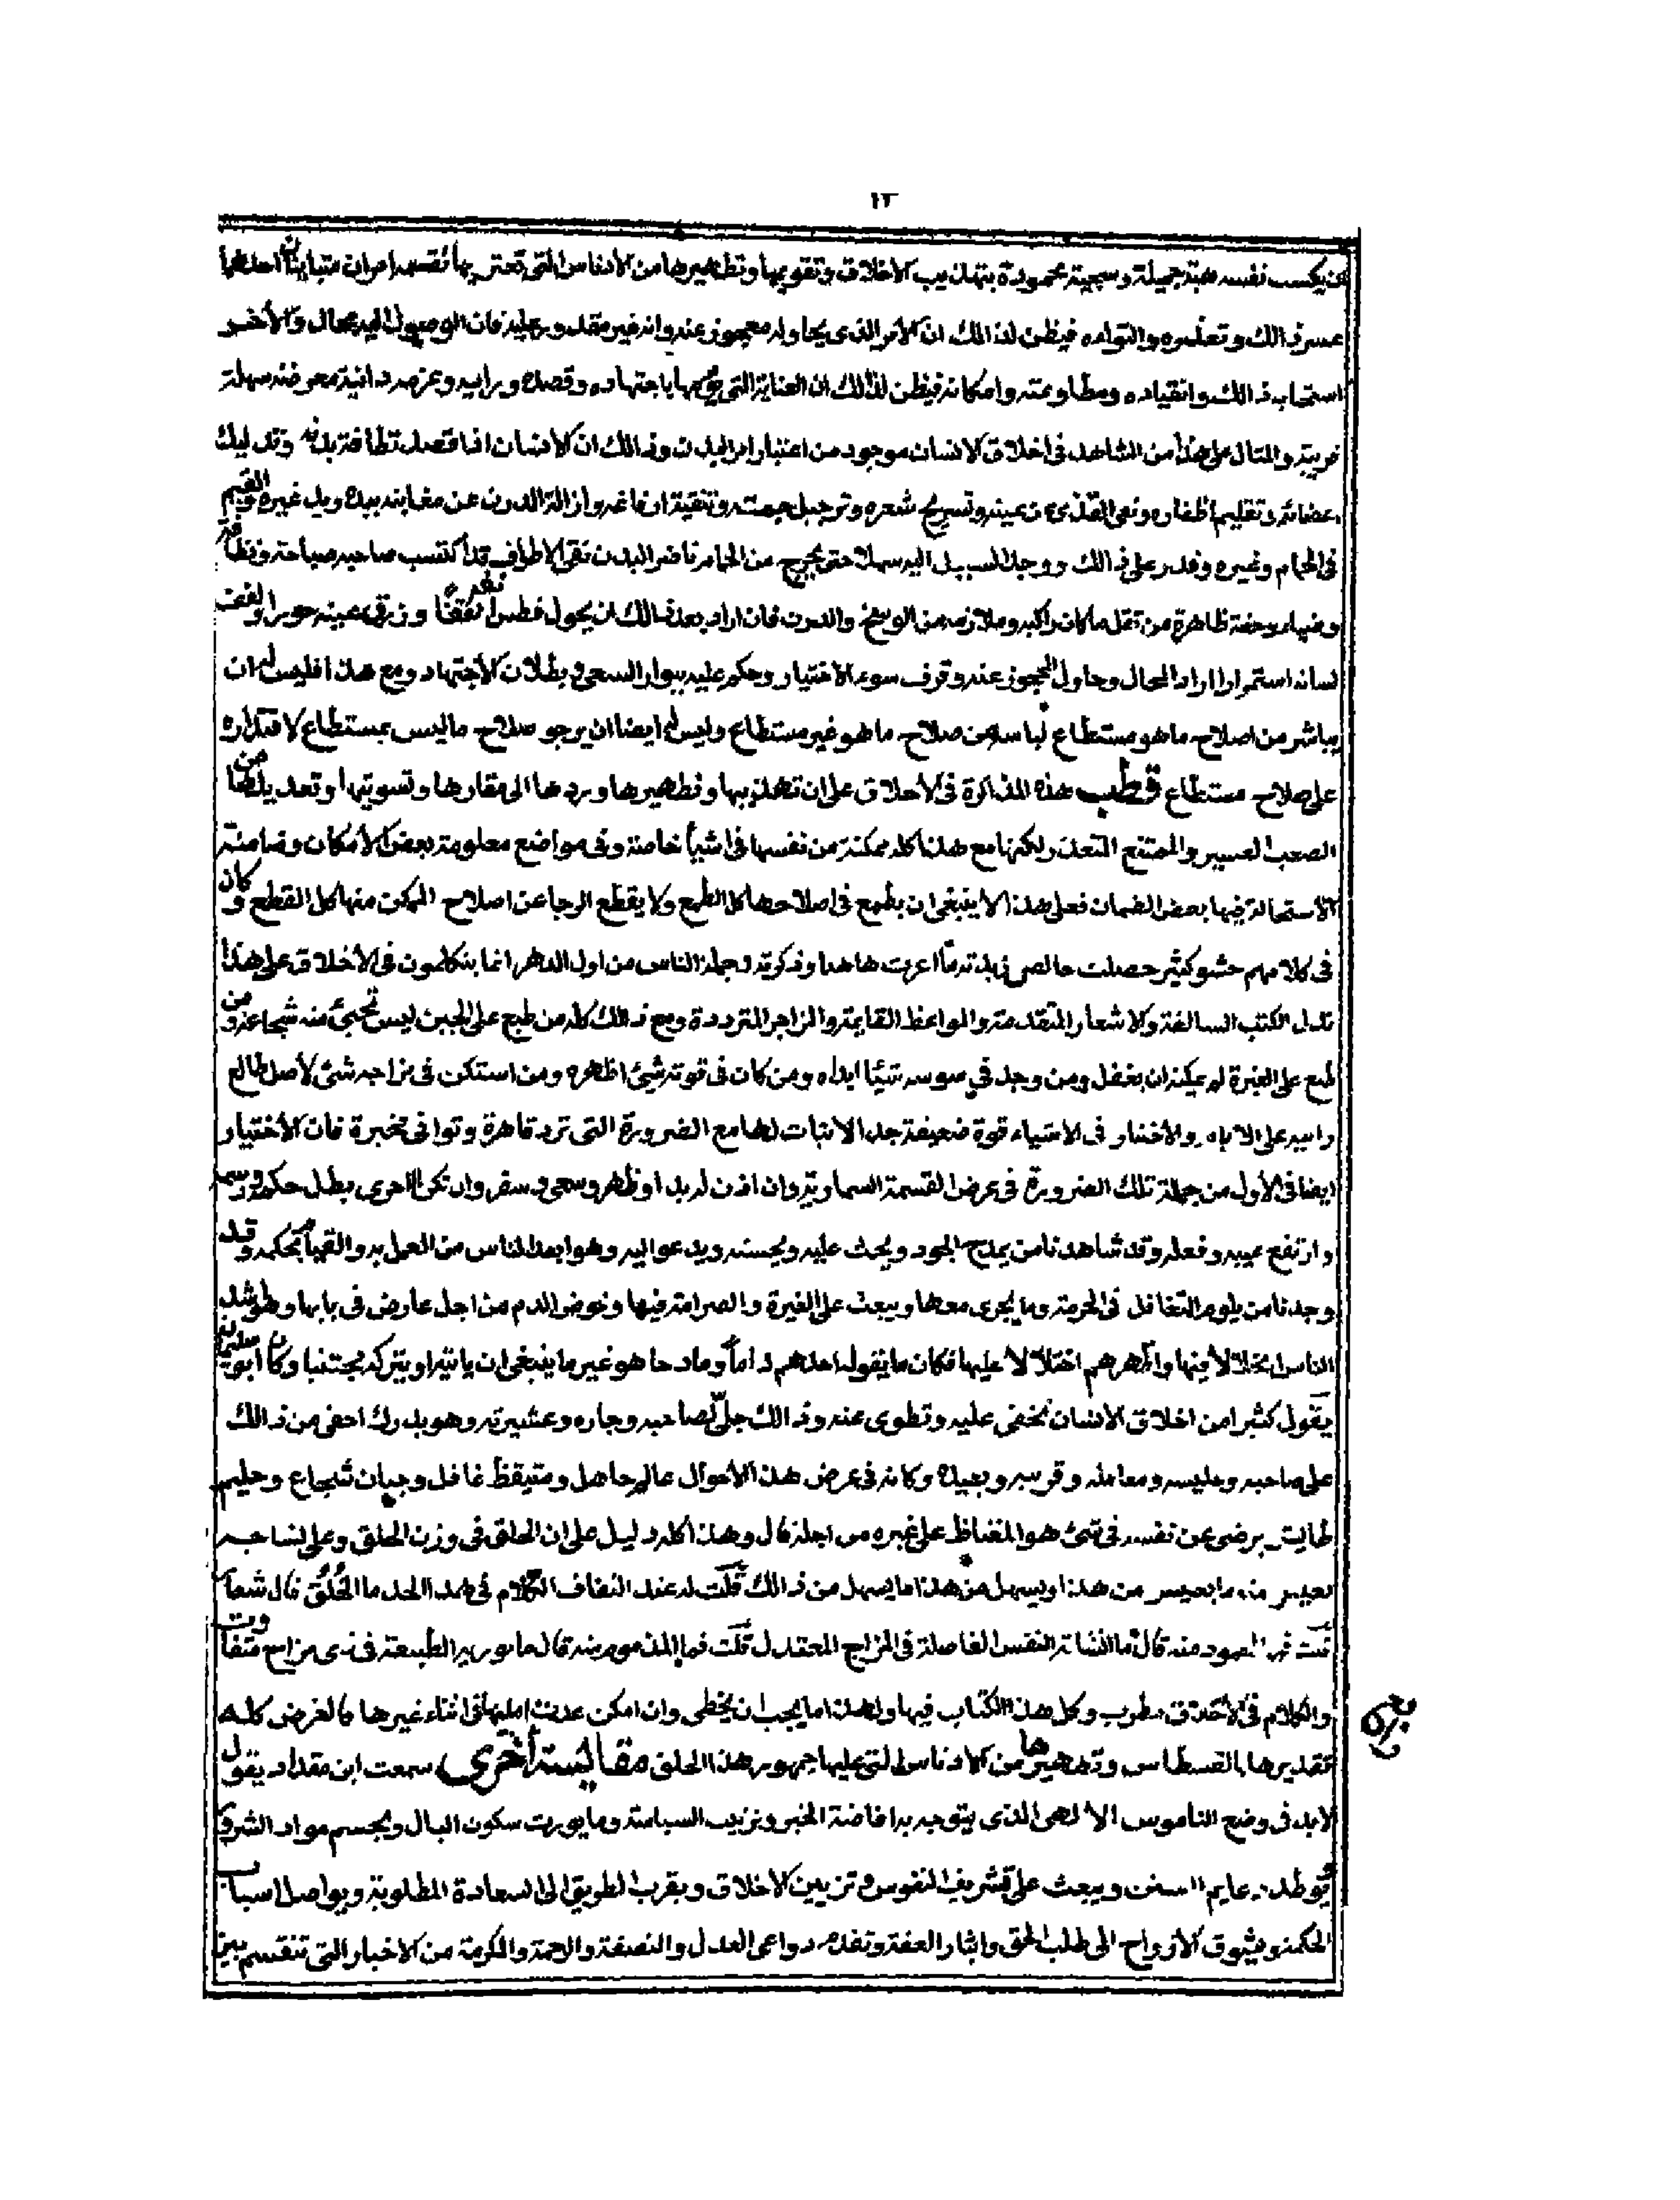 ١٣
يكسب نفسه هيبة جميلة وسجية محمودة بتهذيب الاخلاق وتقويمها وتطهيرها من الادناس التي تعتريها امران متباينان احدهما
عسر ذالك وتعذره والتواءه فيظن لذالك ان الامر الذي يحاوله معجوز عنه وانه غير مقدور عليه فان الوصول اليه محال والأخر
استجابة ذالك وانقياده ومطاوعته وامكانه فيظن لذالك ان العناية التي باجتهاده وقصده ورايه وعزمه دانية سهلة
قريبة والمثال على هذا من الشاهد في اخلاق الانسان موجود من اعتبار امر البدن وذالك ان الانسان اذا قصد نظافة بدنه وتدليك
اعضائه وتقليم اظفاره ونفى القذى عن عينه وتسريح شعره وترجيل جمته وتنقية وازالة الدرن عن مغابنه بيده ويد غيره القيم
في الحمام وغيره وقدر على ذالك ووجد السبيل اليه سهلا حتى يخرج من الحمام ناضر البدن نقى الاطراف قد اكتسب صاحبه صباحة ونظافة
وضياء وخفة ظاهرة من ثقل ما كان راكبه وملازمه من الوسخ والدرن فان اراد بعد ذالك ان يحول فطس وزرق عينيه حورا
لسانه استمرارا اراد المحال وحاول المعجوز عنه وقرف سوء الاختيار وحكم عليه ببوار السعى وبطلان الأجتهاد ومع هذا فليس له ان
يباشر من اصلاح ما هو مستطاع صلاح ما هو غير مستطاع وليس له ايضا ان يرجو صلاح ما ليس بمستطاع لاقتداره
على صلاح مستطاع قطب هذه المذاكرة في الأخلاق على ان تهذيبها وتطهيرها وردها الى مقارها وتسويتها وتعديلها من
الصعب العسير والممتنع المتعذر ولكنها مع هذا كله ممكنة من نفسها في اشياء خاصة وفى مواضع معلومة بعض الامكان وضامنة
الاستحالة فيها بعض الضمان فعلى هذا لا ينبغى ان يطمع في اصلاحها كل الطمع ولا يقطع الرجا عن اصلاح الممكن منها كل القطع وكان
في كلامهم حشو كثير حصلت خالصه وجملة الناس من اول الدهر انما يتكلمون في الأخلاق على هذا
تدل الكتب السالفة والاشعار المتقدمة والمواعظ القائمة والزاجر المترددة ومع ذالك كله من طبع على الجبن ليس تجئ منه شجاعة ومن
طبع على الغيرة لم يمكنه ان يغفل ومن وجد في سوسه شيئا ابداه ومن كان في قوته شئ اظهره ومن استكن في مزاجه شئ لأصل طالع
والاختيار في الاشياء قوة ضعيفة جدا لا ثبات لها مع الضرورة التى ترد قاهرة فان الأختيار
ايضا في الأول من جملة تلك الضرورة في عرض القسمة السماوية وان اذن له بدا وظهر وسعى وسفر وان تكن الاخرى بطل حكمه
وارتفع عيبه وفعله وقد شاهدنا من يمدح الجود ويحث عليه ويحسنه ويدعو اليه وهو ابعد الناس من العمل به والقيام بحكمه وقد
وجدنا من يلوم التغافل في الحرمة وما يجرى معها ويبعث على الغيرة والصرامة فيها وخوض الدم من اجل عارض في بابها وهو اشد
الناس اخلالا فيها واظهرهم اختلالا عليها فكان ما يقوله احدهم ذاما ومادحا هو غير ما ينبغى ان ياتيه او يتركه مجتنبا وكان ابو سليمان
يقول كثيرا من اخلاق الانسان تخفى عليه وتطوى عنه وذالك جلى لصاحبه وجاره وعشيرته وهو يدرك اخفى من ذالك
على صاحبه وجليسه ومعامله وقريبه وبعيده وكانه في عرض هذا الأحوال عالم جاهل ومتيقظ غافل وجبان شجاع وحليم
طايش يرضى عن نفسه في شئ هو المغتاظ على غيره من اجله قال وهذا كله دليل على ان الخلق في وزن الخلق وعلى
يعسر منه ما يعسر من هذا ويسهل من هذا ما يسهل من ذالك قلت له عند الكلام في هذا الحد ما الخلق قال
قلت المحمود منه قال ما انشاته النفس الفاضلة في المزاج المعتدل قلت فما المذموم منه قال ما يوريه الطبيعة في ذى مزاج متفاوت
والكلام في الأخلاق مطرب وكل هذا الكتاب فيها ولهذا ما يجب ان يخطى وان امكن عدت املها في اثناء غيرها فالغرض كله
تقديرها بالقسطاس وتطهيرها من الادناس التي عليها جمهور هذا الخلق مقايسة أخرى سمعت ابن مقداد يقول
لابد في وضع الناموس الالهى الذى يتوجه به افاضة الخير وترتيب السياسة وما يورث سكون البال ويحسم مواد الشر و
يوطد دعايم السنن ويبعث على تشريف النفوس وتزيين الاخلاق ويقرب الطريق الى السعادة المطلوبة ويواصل اسباب
الحكمة ويشوق الأرواح الى طلب الحق وايثار العفة وتقدم دواعى العدل والنصفة والرحمة والمكرمة من الاخبار التى تنقسم بين